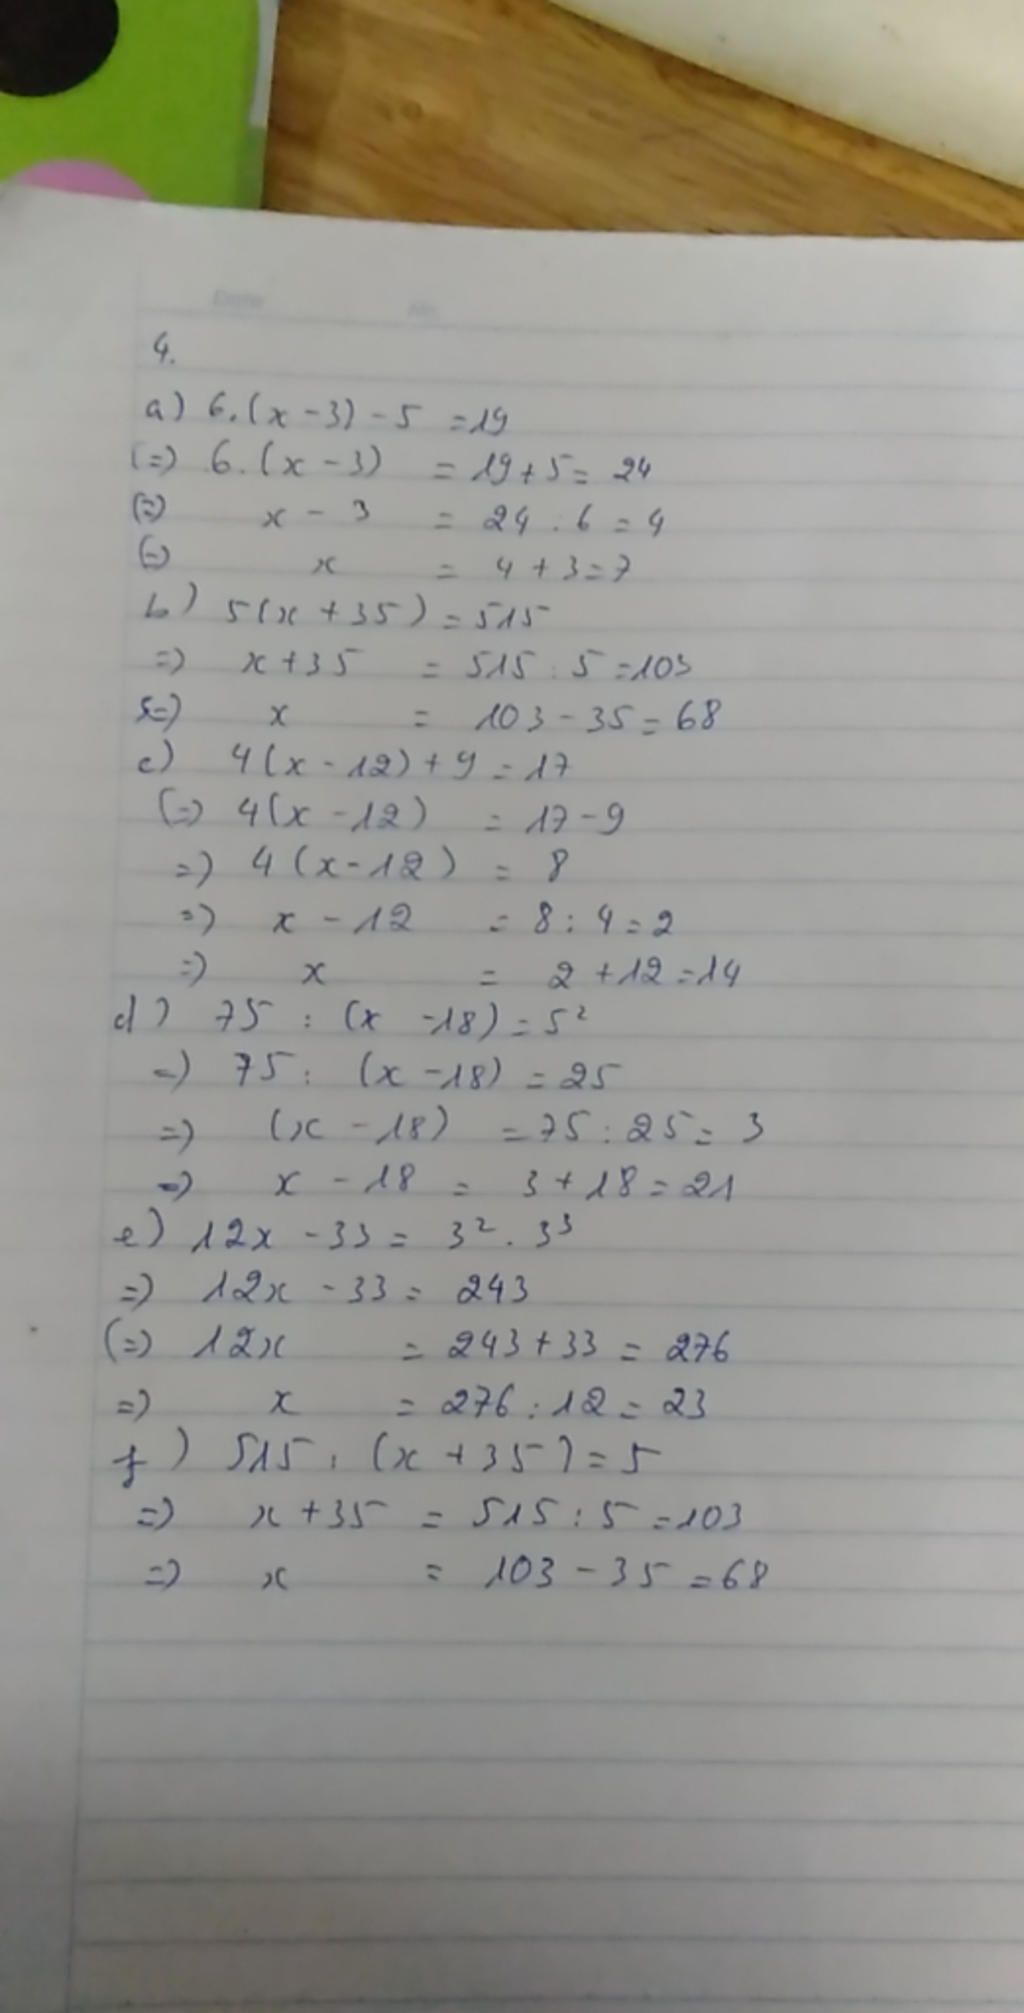 Date No.
4.
a) 6.(x - 3) - 5 = 19
(=) 6.(x - 3) = 19 + 5 = 24
(=) x - 3 = 24 : 6 = 4
(=) x = 4 + 3 = 7
b) 5(x + 35) = 515
=) x + 35 = 515 : 5 = 103
=) x = 103 - 35 = 68
c) 4(x - 12) + 9 = 17
(=) 4(x - 12) = 17 - 9
=) 4(x - 12) = 8
=) x - 12 = 8 : 4 = 2
=) x = 2 + 12 = 14
d) 75 : (x - 18) = 5²
=) 75 : (x - 18) = 25
=) (x - 18) = 75 : 25 = 3
=) x - 18 = 3 + 18 = 21
e) 12x - 33 = 3² . 3³
=) 12x - 33 = 243
(=) 12x = 243 + 33 = 276
=) x = 276 : 12 = 23
f) 515 : (x + 35) = 5
=) x + 35 = 515 : 5 = 103
=) x = 103 - 35 = 68